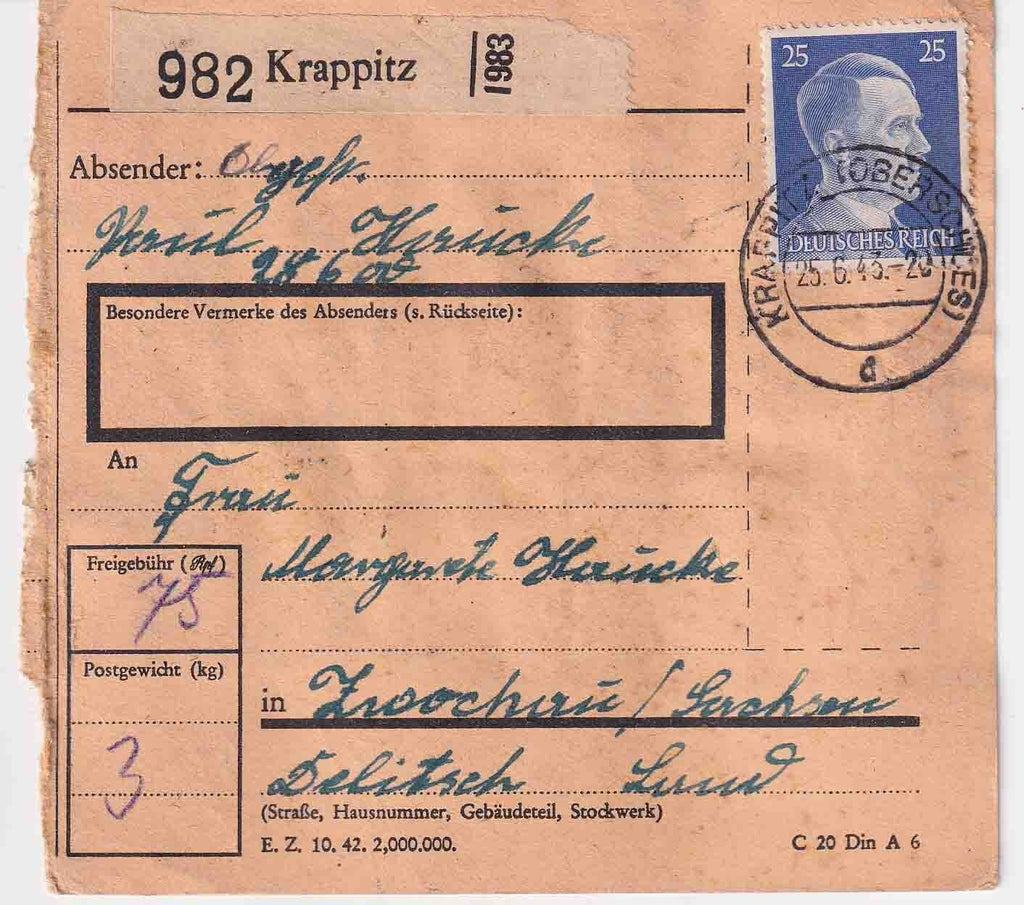 982 Krappitz 1983
25 25
DEUTSCHES REICH
KRAPPITZ (OBERSCHLES)
25.6.43.-20
a
Absender: Obgefr.
Paul Haucke
Besondere Vermerke des Absenders (s. Rückseite):
An Frau
Margarete Haucke
Freigebühr (Rpf)
75
Postgewicht (kg)
3
in Zwochau / Sachsen
Delitsch Land
(Straße, Hausnummer, Gebäudeteil, Stockwerk)
E. Z. 10. 42. 2,000.000.
C 20 Din A 6